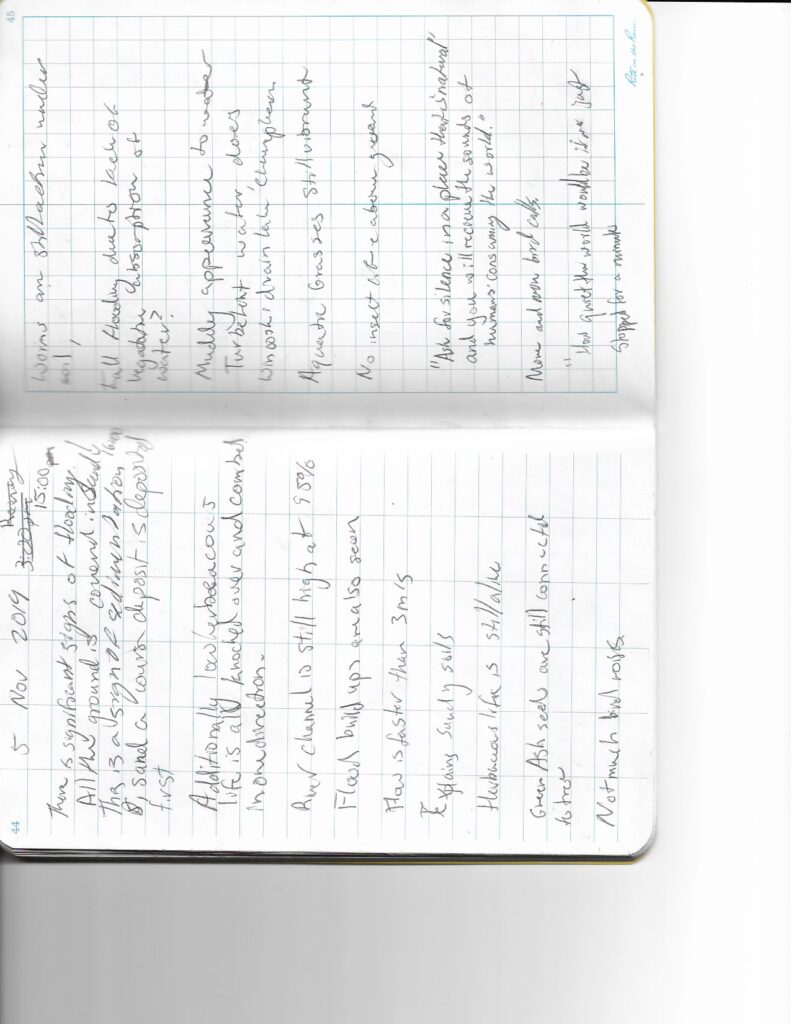 44
5 Nov 2019
15:00
There is significant signs of flooding.
All the ground is covered in sandy
This is a sign of sedimentation
sand a coarse deposit is deposited
first
Additionally low herbacous
life is all knocked over and combed
in one direction.
River Channel is still high at 95%
Flood build ups are also seen
Flow is faster than 3m/s
Explains Sandy soils
Herbacous life is still alive
Green Ash seeds are still connected
to tree
Not much bird noises
45
Worms are still active under
soil,
Fall flooding due to lack of
vegetative absorption of
water?
Muddy appearance to water
Turbelent water does
Winooski drain Lake Champlain
Aquatic Grasses still vibrant
No insect life above ground
"Ask for silence in a place that is natural"
and you will recieve the sounds of
humans consuming the world."
More and more bird calls
"How quiet the world would be if we just
stopped for a minute
Rite in the Rain